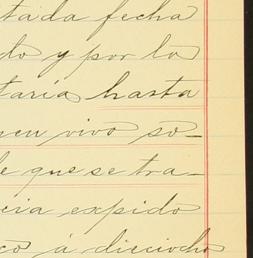 tada fecha
do y por lo
taría hasta
uen vivo so-
le que se tra-
cia expido
co á dieciocho